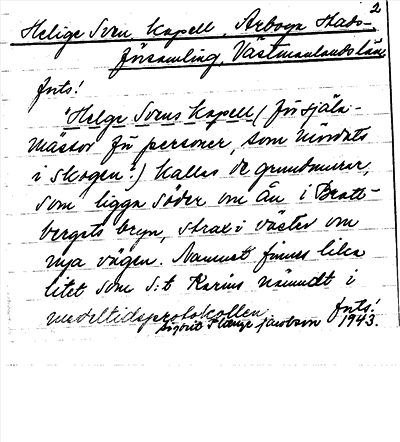 2
Helige Sven, kapell, Arboga Stads-
församling, Västmanlands län
forts!
"Helge Svens Kapell (för själa-
mässor för personer, som mördats
i skogen?) kallas de grundmurar,
som ligga söder om ån i Bratt-
bergets bryn, strax i väster om
nya vägen. Namnet finnes lika
litet som S:t Karins nämndt i
medeltidsprotokollen forts!
Sigrid Flamge Jacobson 1943.